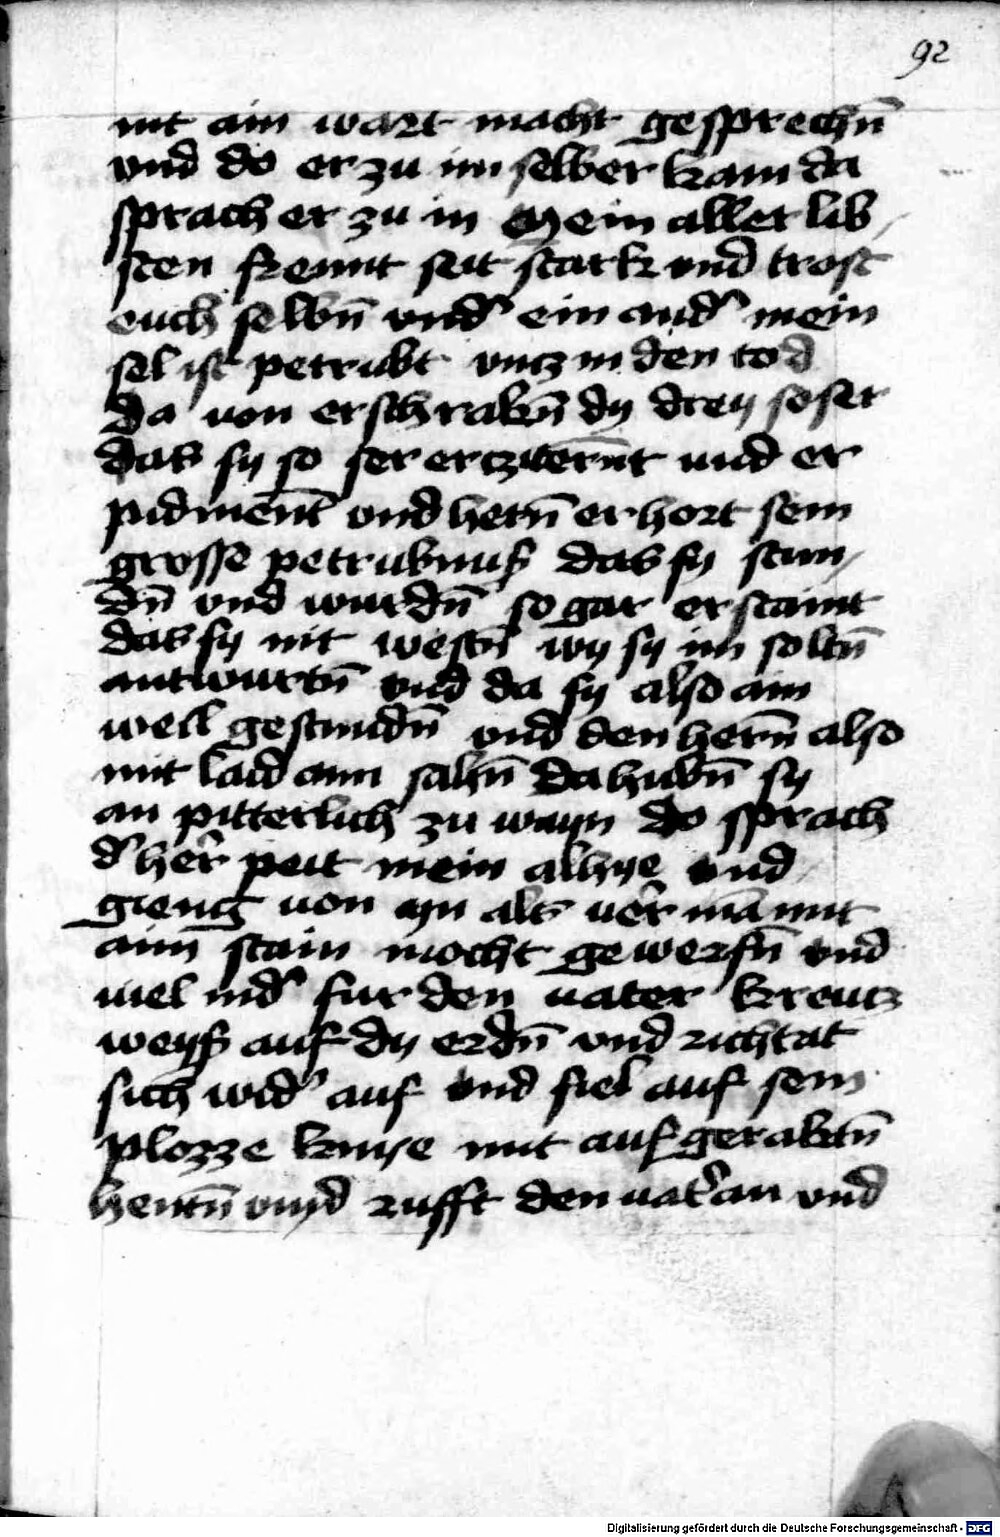 92
nit ain wart macht gesprechn̄
vnd do er zu im selber kam da
sprach er zu in Mein aller lib
sten frewnt seit stark vnd trost
euch selbn̄ vnd' ein and' mein
sel ist petrubt vncz in den tod
Da von erschrakn̄ dy drey so ser
das sy so ser erczitern̄t vnd er
pidment̄ vnd hetn̄ erhort sein
grosse petrubnuß das sy stun
dn̄ vnd wurdn̄ so gar erstaint
das sy nit westn̄ wy sy im soltn̄
antwurtn̄ vnd da sy also ain
weil gestundn̄ vnd den hern̄ also
mit laid ann sahn̄ Da hubn̄ sy
an pitterlich zu wayn do sprach
d' her̄ peit mein alhye vnd
gieng von yn als uer̄ mā mit
aim stain mocht gewerfn̄ vnd
viel nid' fur den uater kreutz
weyß auf dy erdn̄ vnd richtat
sich wid' auf vnd fiel auf sein
plozze kniye mit auf geraktn̄
hentn̄ vnd rufft den uat'an vnd
Digitalisierung gefördert durch die Deutsche Forschungsgemeinschaft - DFG